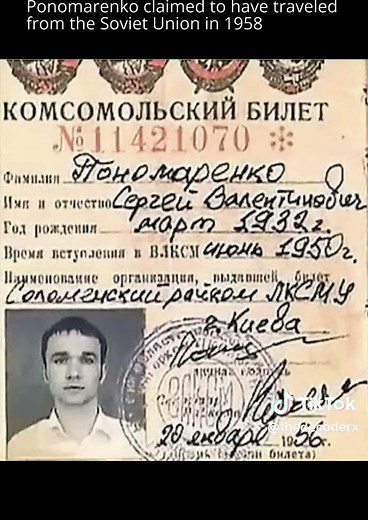 Ponomarenko claimed to have traveled
from the Soviet Union in 1958
КОМСОМОЛЬСКИЙ БИЛЕТ
№ 11421070 *
Фамилия Пономаренко
Имя и отчество Сергей Валентинович
Год рождения март 1932 г.
Время вступления в ВЛКСМ июнь 1950 г.
Наименование организации, выдавшей билет
Соломенский райком ЛКСМУ
г. Киева
ВЛКСМ
TikTok
@thedecoderx
20 января 1956 г.
билета)